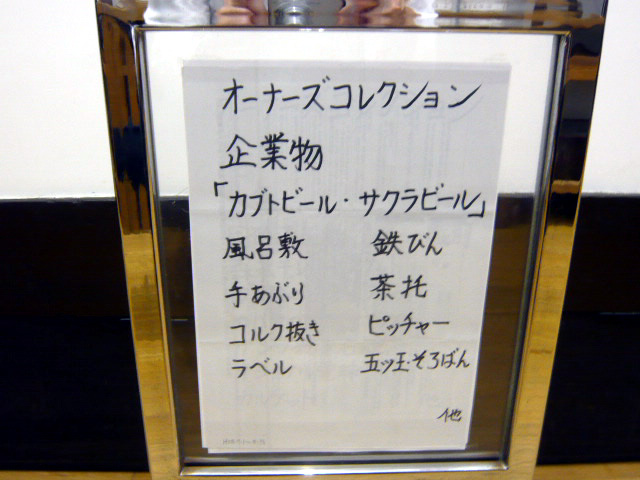 オーナーズコレクション
企業物
「カブトビール・サクラビール」
風呂敷 鉄びん
手あぶり 茶托
コルク抜き ピッチャー
ラベル 五ツ玉そろばん
他